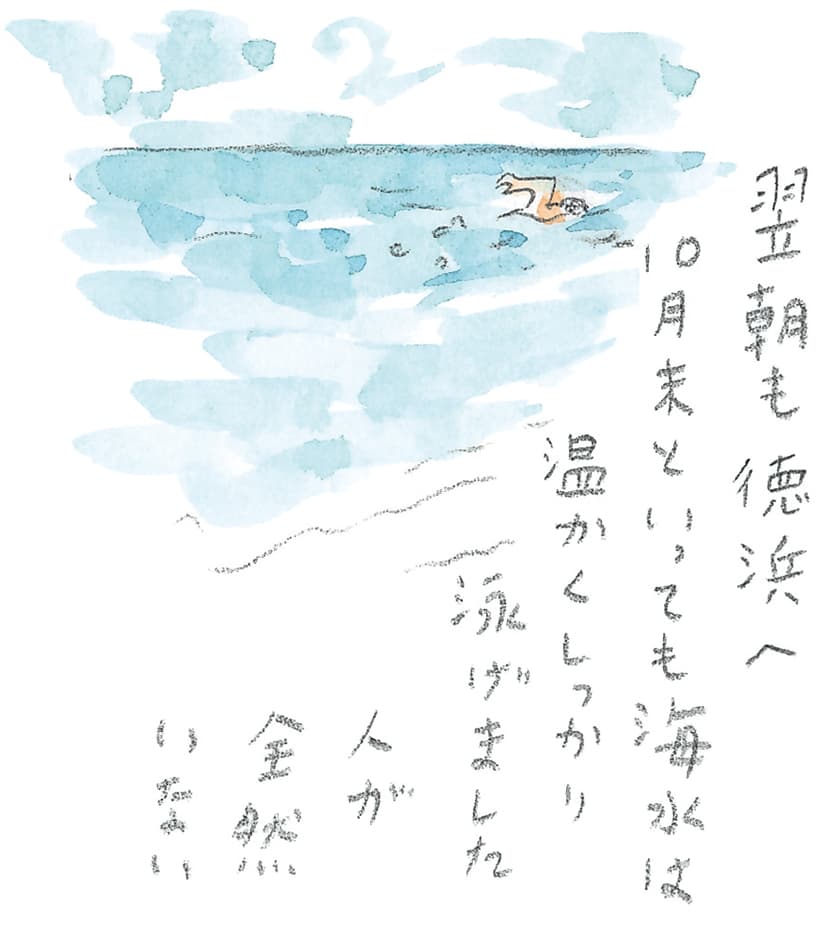 翌朝も徳浜へ
10月末といっても海水は
温かくしっかり
泳げました
人が
全然
いない